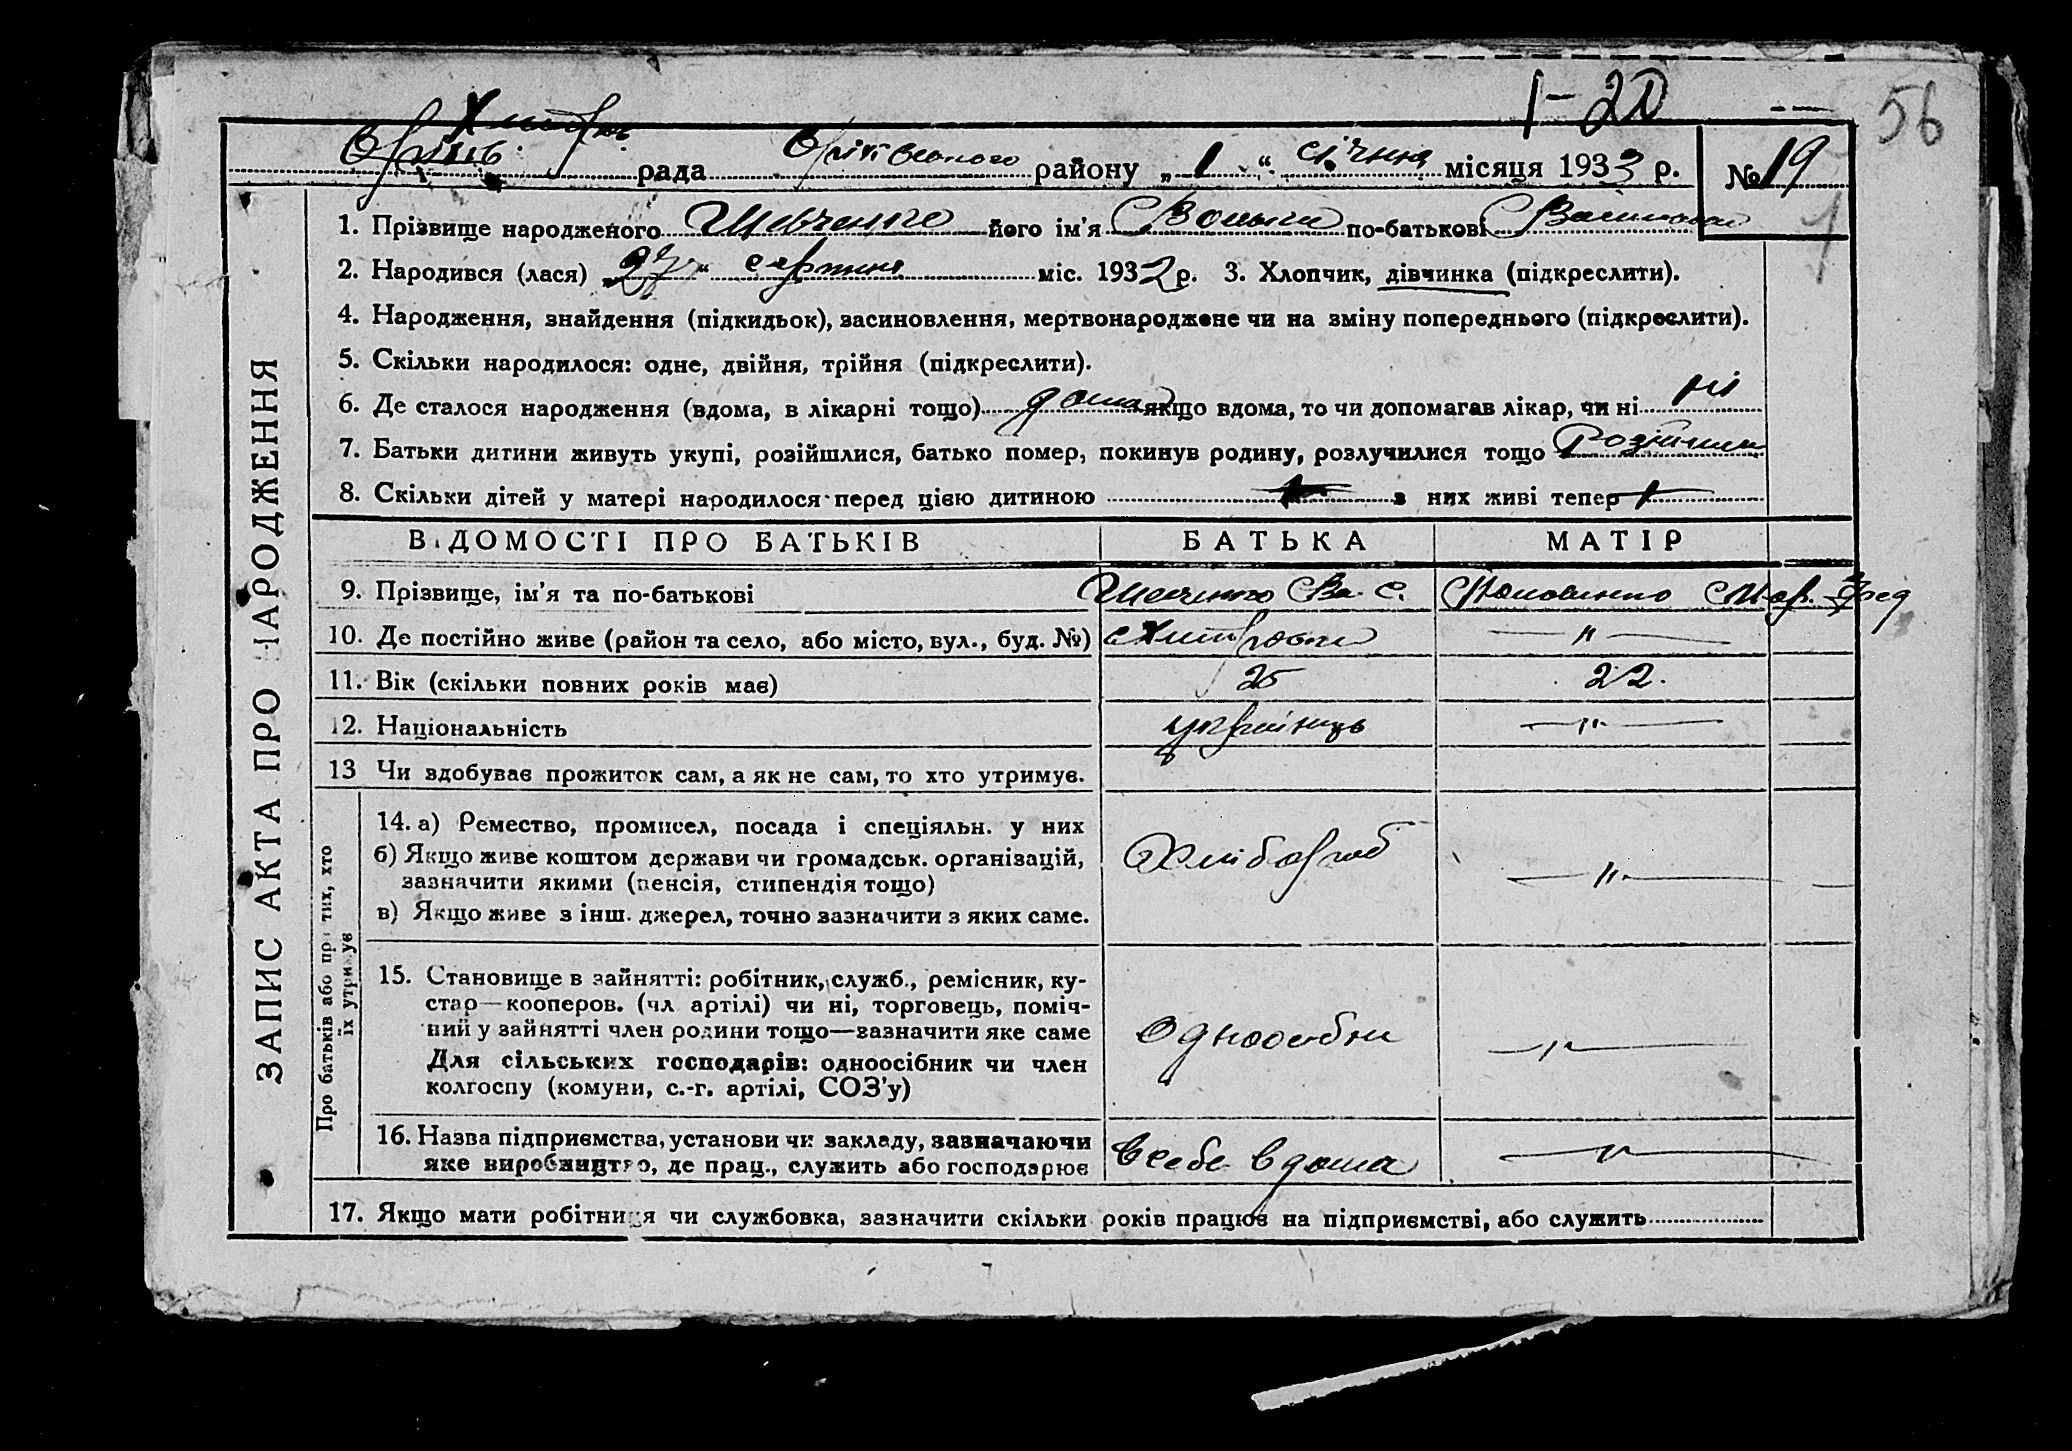 1-20
56
рада району „1“ січня місяця 1933 р. № 19
1
1. Прізвище народженого Шевченко його ім'я по-батькові
2. Народився (лася) „27“ серпня міс. 1932 р. 3. Хлопчик, дівчинка (підкреслити).
4. Народження, знайдення (підкидьок), засиновлення, мертвонароджене чи на зміну попереднього (підкреслити).
5. Скільки народилося: одне, двійня, трійня (підкреслити).
6. Де сталося народження (вдома, в лікарні тощо) дома якщо вдома, то чи допомагав лікар, чи ні ні
7. Батьки дитини живуть укупі, розійшлися, батько помер, покинув родину, розлучилися тощо Розійшлись
8. Скільки дітей у матері народилося перед цією дитиною з них живі тепер
ВІДОМОСТІ ПРО БАТЬКІВ БАТЬКА МАТІР
9. Прізвище, ім'я та по-батькові Шевченко Ва. С. Мар. Фед
10. Де постійно живе (район та село, або місто, вул., буд. №) — " —
11. Вік (скільки повних років має) 25 22.
12. Національність українець — " —
13 Чи здобуває прожиток сам, а як не сам, то хто утримує.
14. а) Ремество, промисел, посада і спеціяльн. у них
б) Якщо живе коштом держави чи громадськ. організацій,
зазначити якими (пенсія, стипендія тощо)
в) Якщо живе з інш. джерел, точно зазначити з яких саме.
Хлібороб — " —
15. Становище в зайнятті: робітник, служб., ремісник, ку-
стар—кооперов. (чл артілі) чи ні, торговець, поміч-
ний у зайнятті член родини тощо—зазначити яке саме
Для сільських господарів: одноосібник чи член
колгоспу (комуни, с.-г. артілі, СОЗ'у)
— " —
16. Назва підприємства, установи чи закладу, зазначаючи
яке виробництво, де прац., служить або господарює
в себе вдома — " —
17. Якщо мати робітниця чи службовка, зазначити скільки років працює на підприємстві, або служить
ЗАПИС АКТА ПРО НАРОДЖЕННЯ
Про батьків або про тих, хто
їх утримує